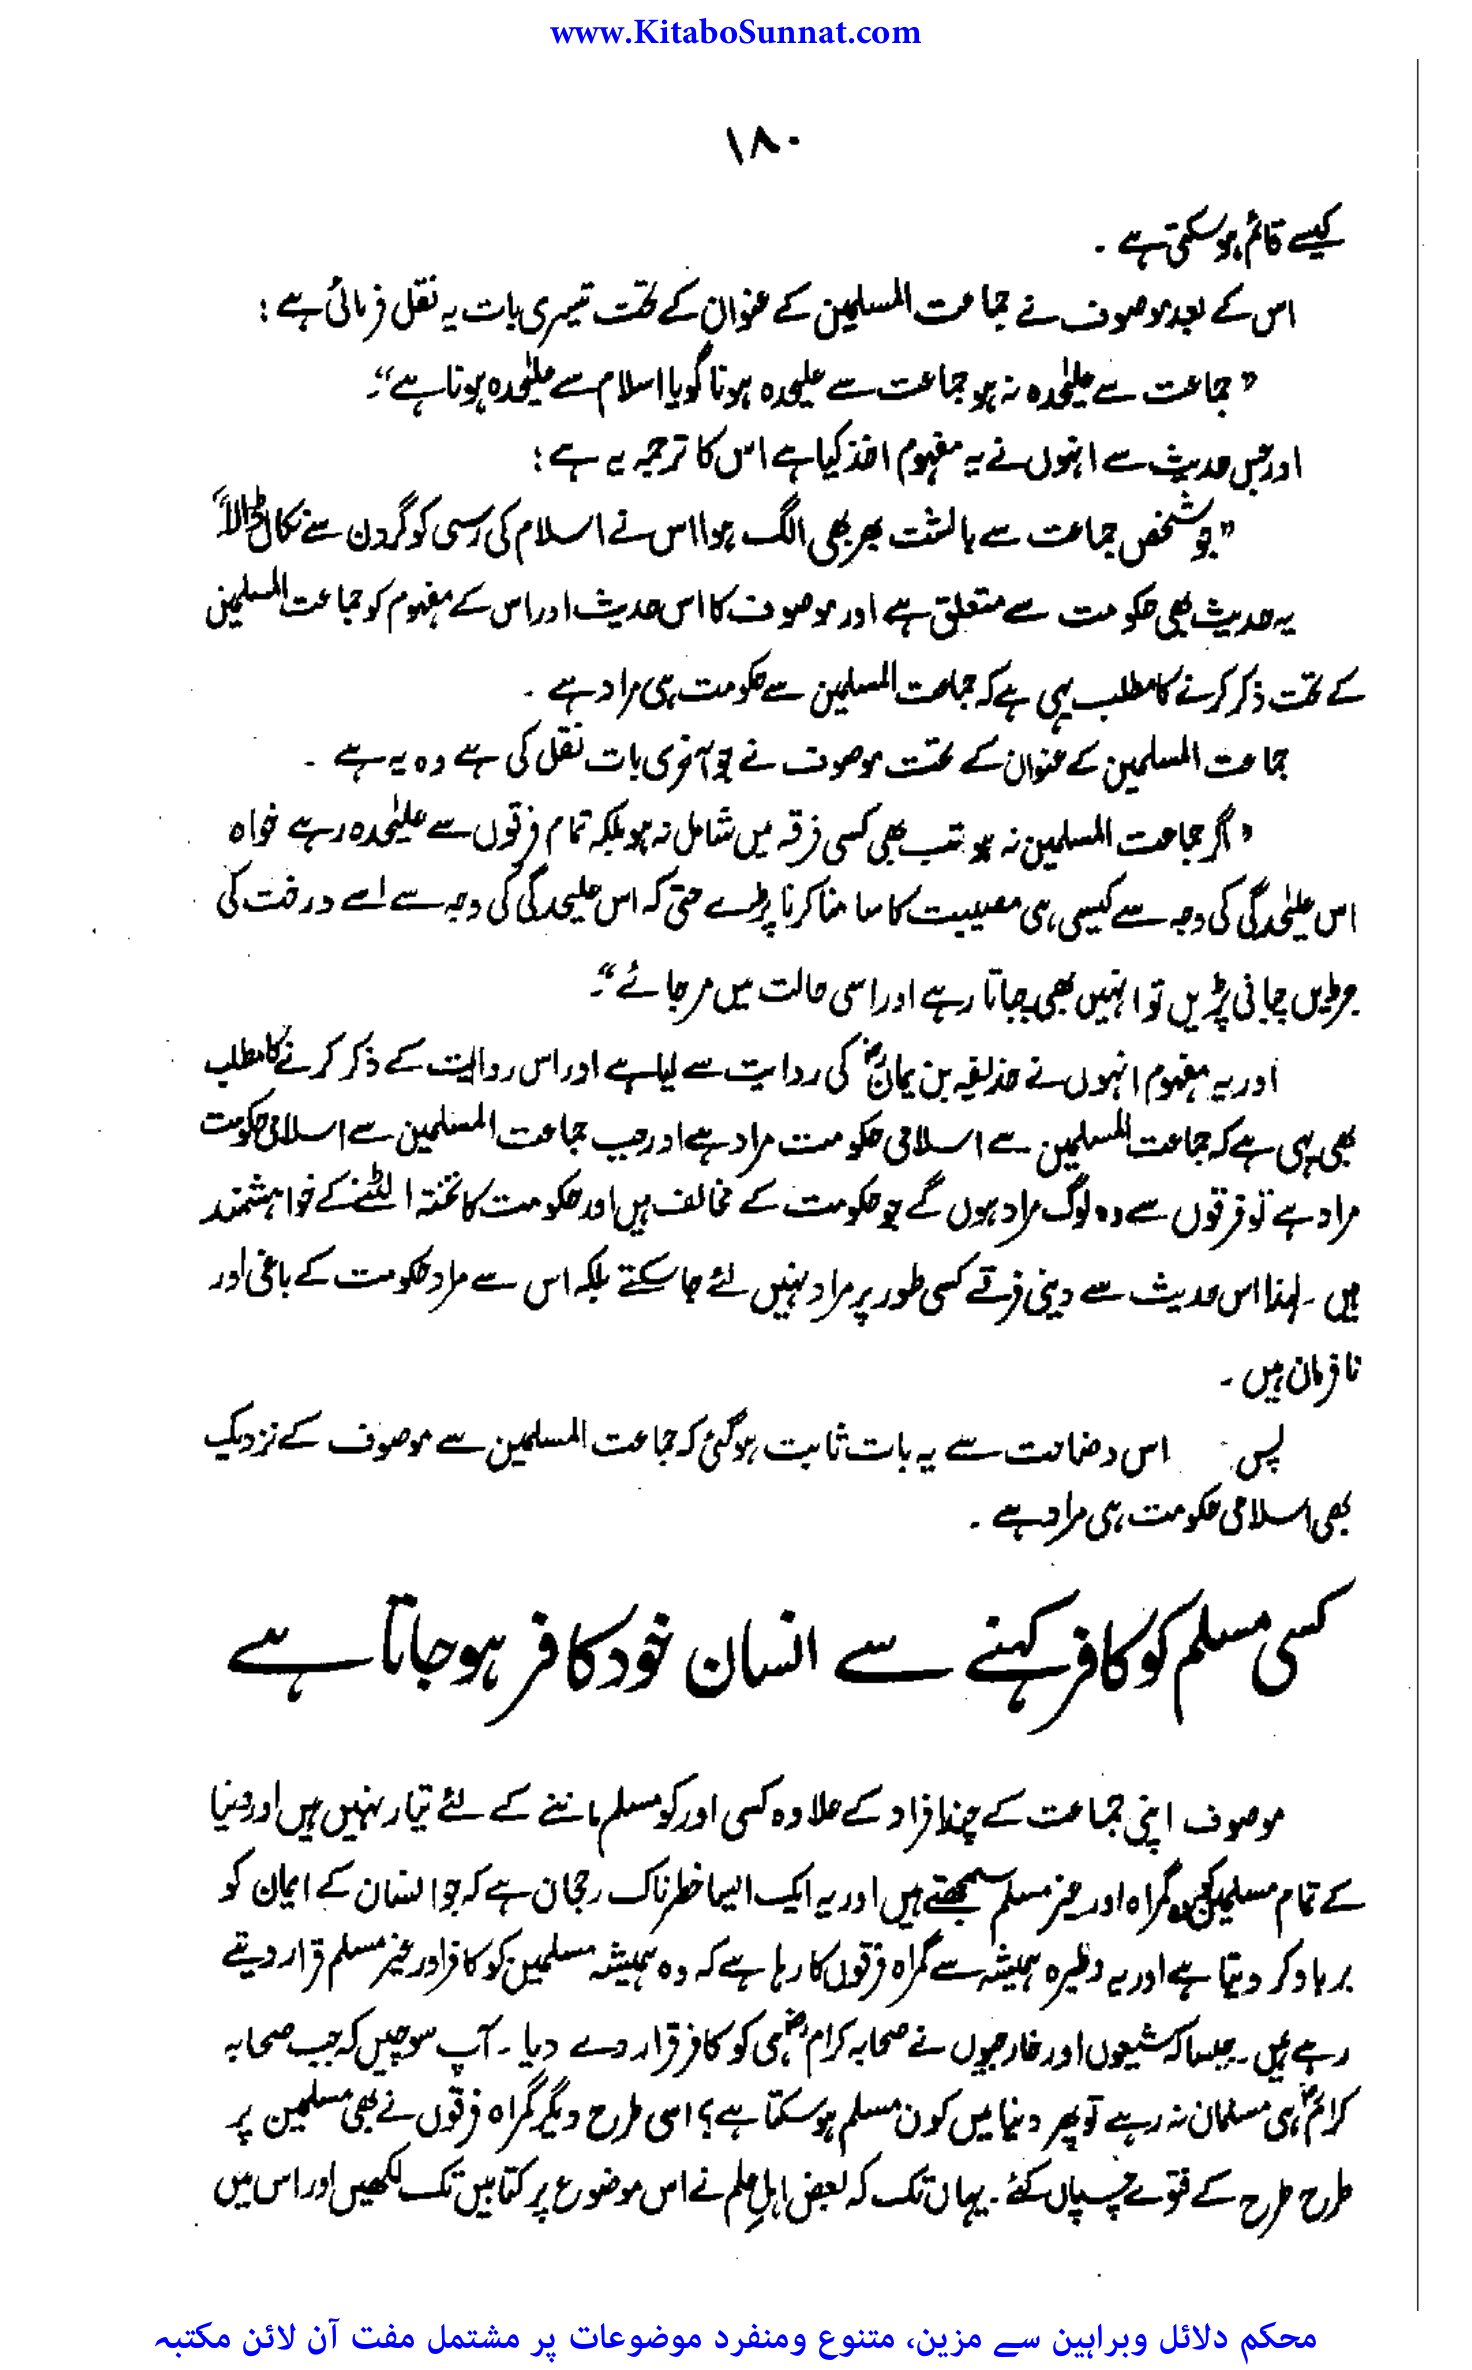 www.KitaboSunnat.com
۱۸۰
کیسے قائم ہوسکتی ہے ۔
اس کے بعد موصوف نے جماعت المسلمین کے عنوان کے تحت تیسری بات یہ نقل فرمائی ہے :
” جماعت سے علیٰحدہ نہ ہو جماعت سے علیحدہ ہونا گویا اسلام سے علیٰحدہ ہونا ہے“۔
اور جس حدیث سے انہوں نے یہ مفہوم اخذ کیا ہے اس کا ترجمہ یہ ہے :
”جو شخص جماعت سے بالشت بھر بھی الگ ہوا اس نے اسلام کی رسی کو گردن سے نکال ڈالا“
یہ حدیث بھی حکومت سے متعلق ہے اور موصوف کا اس حدیث اور اس کے مفہوم کو جماعت المسلمین
کے تحت ذکر کرنے کا مطلب یہی ہے کہ جماعت المسلمین سے حکومت ہی مراد ہے ۔
جماعت المسلمین کے عنوان کے تحت موصوف نے جو آخری بات نقل کی ہے وہ یہ ہے ۔
”اگر جماعت المسلمین نہ ہو تب بھی کسی فرقہ میں شامل نہ ہو بلکہ تمام فرقوں سے علیٰحدہ رہے خواہ
اس علیٰحدگی کی وجہ سے کیسی ہی مصیبت کا سامنا کرنا پڑے حتی کہ اس علیحدگی کی وجہ سے اسے درخت کی
جڑیں چبانی پڑیں تو انہیں بھی چباتا رہے اور اسی حالت میں مر جائے“۔
اور یہ مفہوم انہوں نے حذیفہ بن یمانؓ کی روایت سے لیا ہے اور اس روایت کے ذکر کرنے کا مطلب
بھی یہی ہے کہ جماعت المسلمین سے اسلامی حکومت مراد ہے اور جب جماعت المسلمین سے اسلامی حکومت
مراد ہے تو فرقوں سے وہ لوگ مراد ہوں گے جو حکومت کے مخالف ہیں اور حکومت کا تختہ الٹنے کے خواہشمند
ہیں ۔ لہٰذا اس حدیث سے دینی فرقے کسی طور پر مراد نہیں لئے جا سکتے بلکہ اس سے مراد حکومت کے باغی اور
نافرمان ہیں ۔
پس اس وضاحت سے یہ بات ثابت ہوگئی کہ جماعت المسلمین سے موصوف کے نزدیک
بھی اسلامی حکومت ہی مراد ہے ۔
کسی مسلم کو کافر کہنے سے انسان خود کافر ہوجاتا ہے
موصوف اپنی جماعت کے چند افراد کے علاوہ کسی اور کو مسلم ماننے کے لئے تیار نہیں ہیں اور دنیا
کے تمام مسلمین کو گمراہ اور غیر مسلم سمجھتے ہیں اور یہ ایک ایسا خطرناک رجحان ہے کہ جو انسان کے ایمان کو
برباد کر دیتا ہے اور یہ وطیرہ ہمیشہ سے گمراہ فرقوں کا رہا ہے کہ وہ ہمیشہ مسلمین کو کافر اور غیر مسلم قرار دیتے
رہے ہیں ۔ جیسا کہ شیعوں اور خارجیوں نے صحابہ کرامؓ ہی کو کافر قرار دے دیا ۔ آپ سوچیں کہ جب صحابہ
کرامؓ ہی مسلمان نہ رہے تو پھر دنیا میں کون مسلم ہوسکتا ہے؟ اسی طرح دیگر گمراہ فرقوں نے بھی مسلمین پر
طرح طرح کے فتوے چسپاں کئے ۔ یہاں تک کہ بعض اہلِ علم نے اس موضوع پر کتابیں تک لکھیں اور اس میں
محکم دلائل وبراہین سے مزین، متنوع ومنفرد موضوعات پر مشتمل مفت آن لائن مکتبہ